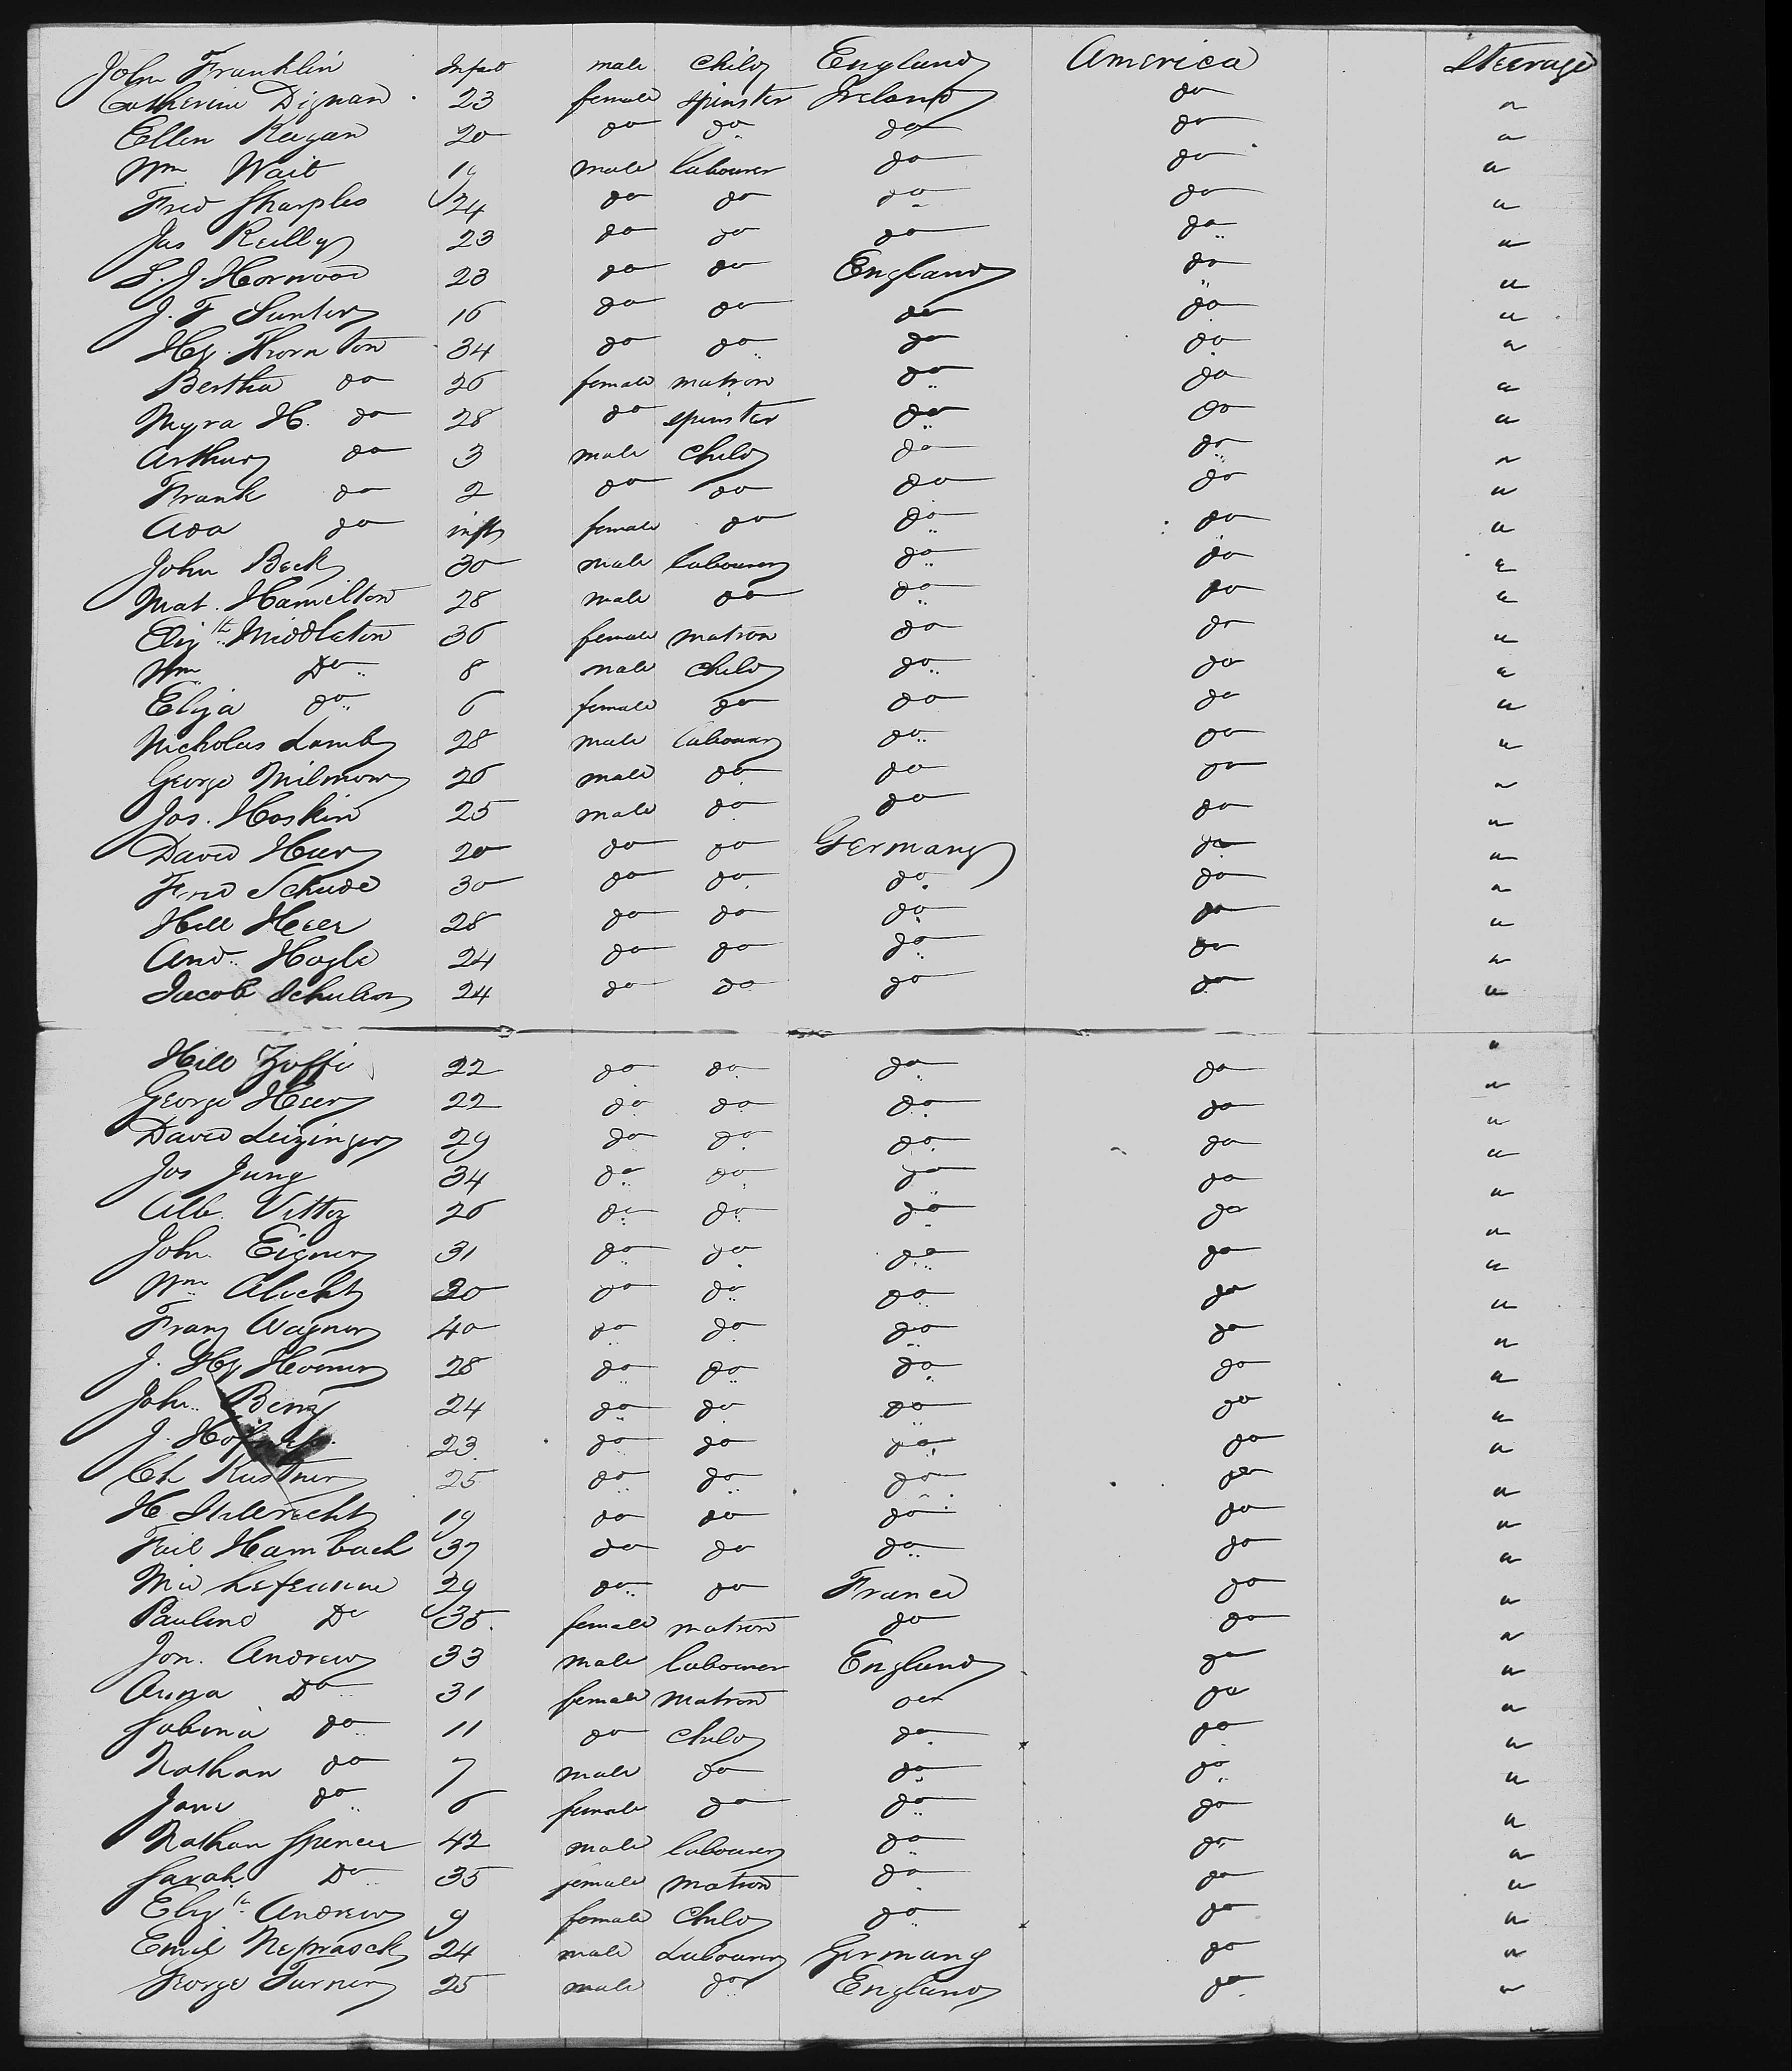 John Franklin Infant male child England America Steerage
Catherine Dignan 23 female spinster Ireland do "
Ellen Reagan 20 do do do do "
Wm Wait 19 male labourer do do "
Fred Sharples 24 do do do do "
Jas Reilly 23 do do do do "
S. J. Hornwood 23 do do England do "
J. F Sunter 16 do do do do "
Hy. Thornton 34 do do do do "
Bertha do 26 female matron do do "
Myra H. do 28 do spinster do do "
Arthur do 3 male child do do "
Frank do 2 do do do do "
Ada do inft female do do do "
John Beck 30 male labourer do do "
Mat. Hamilton 28 male do do do "
Elizth Middleton 36 female matron do do "
Wm Do 8 male child do do "
Eliza do 6 female do do do "
Nicholas Lamb 28 male labourer do do "
George Milmore 26 male do do do "
Jos. Hoskin 25 male do do do "
David Heer 20 do do Germany do "
Ferd Schude 30 do do do do "
Hill Heer 28 do do do do "
And. Hogle 24 do do do do "
Jacob 24 do do do do "
Hill Zoffi 22 do do do do "
George Heer 22 do do do do "
David Leizinger 29 do do do do "
Jos Jung 34 do do do do "
Alb. Vittoz 26 do do do do "
John Eigner 31 do do do do "
Wm Alicht 30 do do do do "
Franz Wagner 40 do do do do "
J. Hy 28 do do do do "
John Benz 24 do do do do "
J. 23 do do do do "
Ch Kustner 25 do do do do "
H 19 do do do do "
Hambach 37 do do do do "
29 do do France do "
Pauline Do 35 female matron do do "
Jon. Andrew 33 male labourer England do "
Anna Do 31 female matron do do "
Sabina do 11 do child do do "
Nathan do 7 male do do do "
Jane do 6 female do do do "
Nathan Spencer 42 male labourer do do "
Sarah Do 35 female matron do do "
Elizth Andrew 9 female child do do "
Emil 24 male Labourer Germany do "
George Turner 25 male do England do "